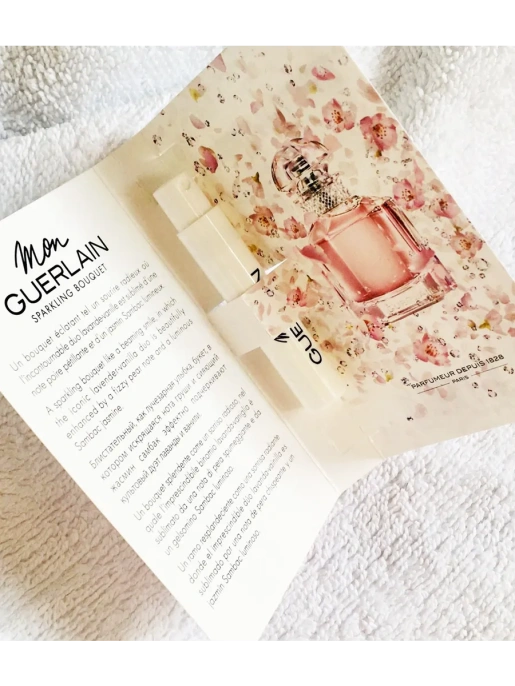 Mon
GUERLAIN
SPARKLING BOUQUET
Un bouquet éclatant tel un sourire radieux où
l'incontournable duo lavande-vanille est sublimé d'une
note poire pétillante et d'un jasmin Sambac lumineux.
A sparkling bouquet like a beaming smile, in which
the iconic lavender-vanilla duo is beautifully
enhanced by a fizzy pear note and a luminous
Sambac jasmine.
Блистательный, как лучезарная улыбка, букет, в
котором искрящаяся нота груши и сияющий
жасмин самбак эффектно подчеркивают
культовый дуэт лаванды и ванили.
Un bouquet splendente come un sorriso radioso, nel
quale l'imprescindibile binomio lavanda-vaniglia è
sublimato da una nota di pera spumeggiante e da
un gelsomino Sambac luminoso.
Un ramo resplandeciente como una sonrisa radiante
donde el imprescindible dúo lavanda-vainilla es
sublimado por una nota de pera chispeante y un
jazmín Sambac luminoso.
GUE
PARFUMEUR DEPUIS 1828
PARIS